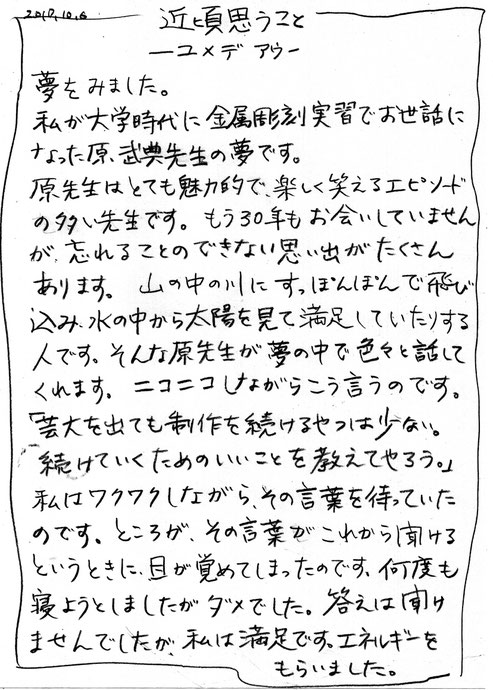 2019.10.6
近頃思うこと
ーユメデ アウー
夢をみました。
私が大学時代に金属彫刻実習でお世話に
なった原 武典先生の夢です。
原先生はとても魅力的で、楽しく笑えるエピソード
の多い先生です。もう30年もお会いしていません
が、忘れることのできない思い出がたくさん
あります。山の中の川にすっぽんぽんで飛び
込み、水の中から太陽を見て満足していたりする
人です。そんな原先生が夢の中で色々と話して
くれます。ニコニコしながらこう言うのです。
「芸大を出ても制作を続けるやつは少ない。
続けていくためのいいことを教えてやろう。」
私はワクワクしながら、その言葉を待っていた
のです。ところが、その言葉がこれから聞ける
というときに、目が覚めてしまったのです、何度も
寝ようとしましたがダメでした。答えは聞け
ませんでしたが、私は満足です。エネルギーを
もらいました。